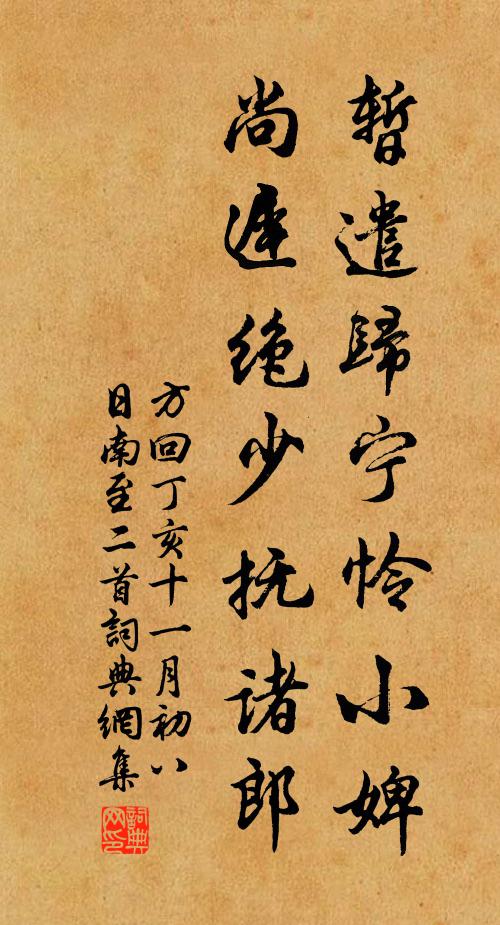 暫遣歸宁怜小婢
尚遲绝少抚诸郎
方回丁亥十一月初八
日南至二首詞典網集
詞典网印